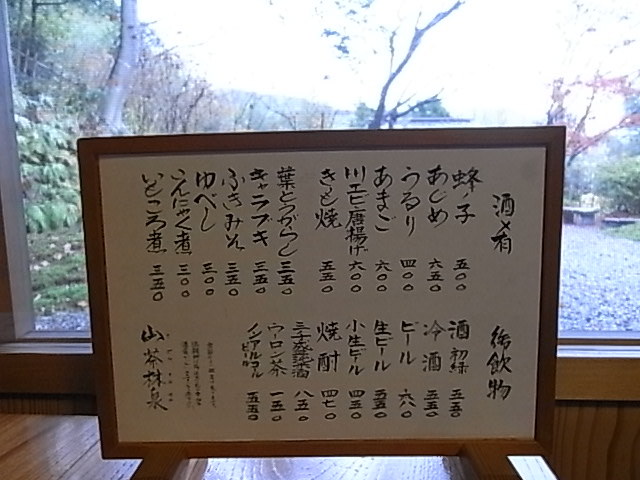 酒肴
蜂ノ子 五〇〇
あじめ 六五〇
うるり 四〇〇
あまご 六〇〇
川エビ唐揚げ 六〇〇
きも焼 五五〇
葉とうがらし 三五〇
キャラブキ 三五〇
ふきみそ 三五〇
ゆべし 三〇〇
こんにゃく煮 三〇〇
いところ煮 三五〇
御飲物
酒 初緑 五五〇
冷酒 五五〇
ビール 六八〇
生ビール 五五〇
小生ビール 四三〇
焼酎 四七〇
八五〇
ウーロン茶 一五〇
ノンアルコールビール 五五〇
山茶
泉